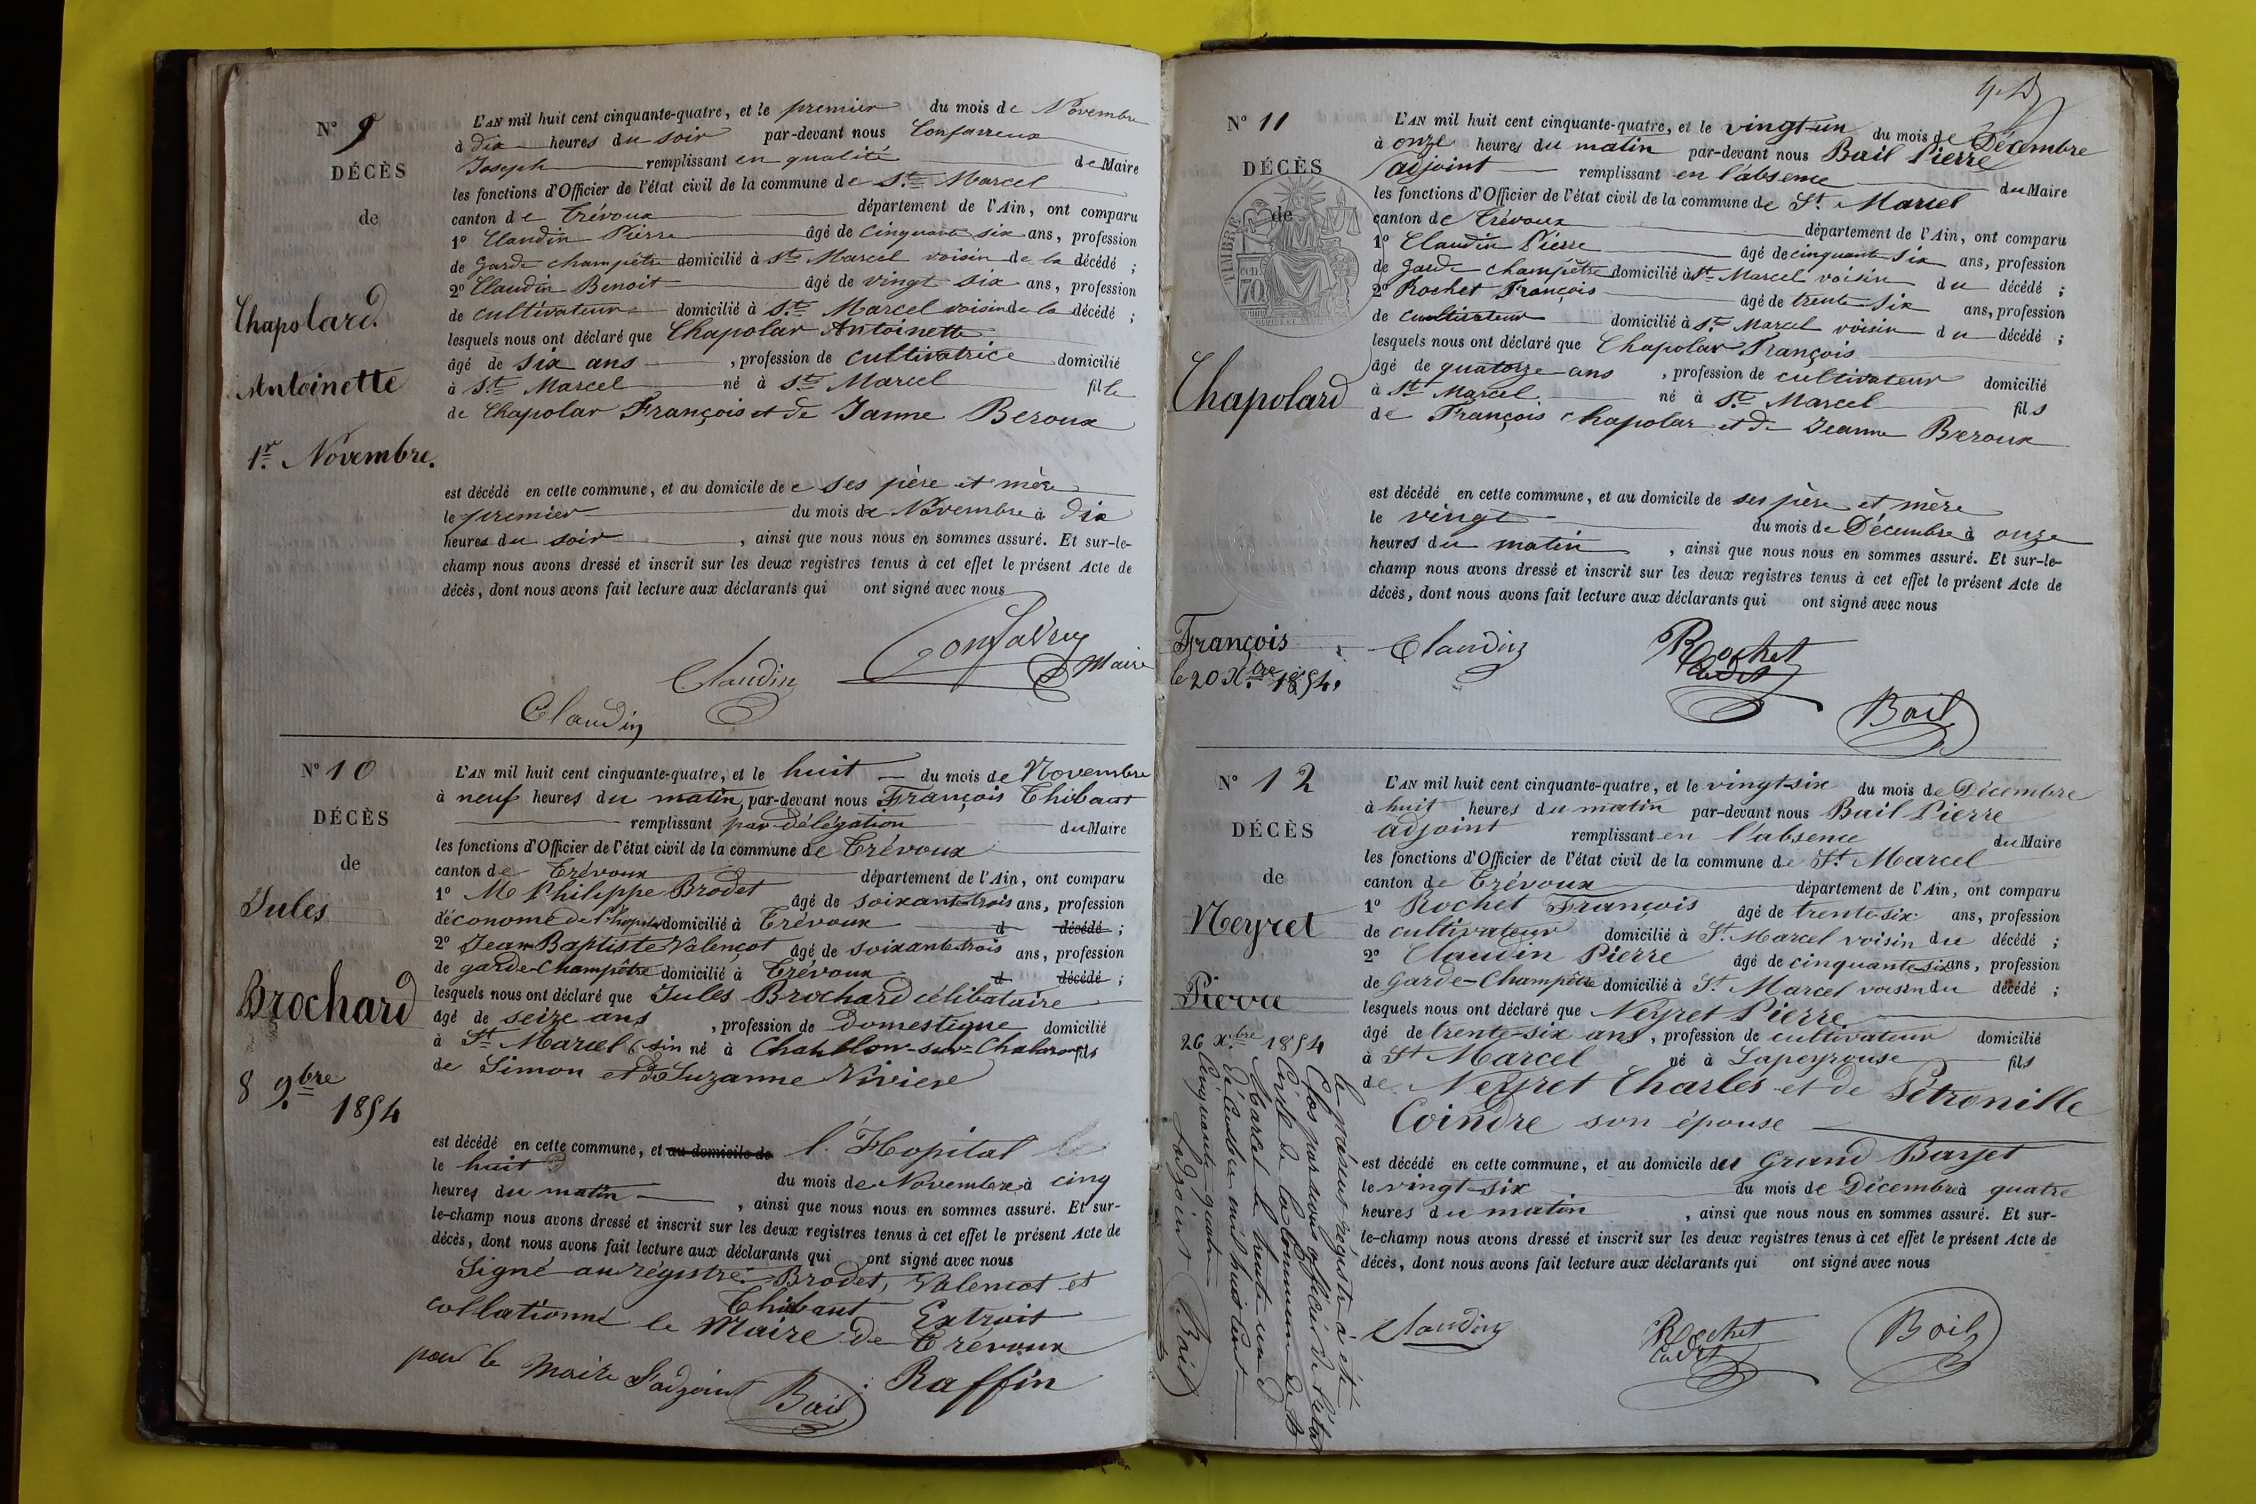 N° 9
DÉCÈS
de
Chapolard.
Antoinette
1er. Novembre.
L'AN mil huit cent cinquante-quatre, et le premier du mois de Novembre
à dix heures du soir par-devant nous Confavreux
Joseph remplissant en qualité de Maire
les fonctions d'Officier de l'état civil de la commune de St. Marcel
canton de Trévoux département de l'Ain, ont comparu
1° Claudin Pierre âgé de Cinquante six ans, profession
de Garde champêtre domicilié à St. Marcel voisin de la décédé ;
2° Claudin Benoit âgé de vingt six ans, profession
de cultivateur domicilié à St. Marcel voisin de la décédé ;
lesquels nous ont déclaré que Chapolar Antoinette
âgé de six ans , profession de cultivatrice domicilié
à St. Marcel né à St. Marcel fille
de Chapolar François et de Janne Beroux
est décédé en cette commune, et au domicile de ses père et mère
le premier du mois de Novembre à dix
heures du soir , ainsi que nous nous en sommes assuré. Et sur-le-
champ nous avons dressé et inscrit sur les deux registres tenus à cet effet le présent Acte de
décès, dont nous avons fait lecture aux déclarants qui ont signé avec nous
Confavreux
Maire
Claudin
Claudin
N° 10
DÉCÈS
de
Jules
Brochard
8 9.bre 1854
L'AN mil huit cent cinquante-quatre, et le huit du mois de Novembre
à neuf heures du matin, par-devant nous François Thibaut
remplissant par délégation du Maire
les fonctions d'Officier de l'état civil de la commune de Trévoux
canton de Trévoux département de l'Ain, ont comparu
1° M Philippe Brodet âgé de soixante-trois ans, profession
d'économe de l'hopital domicilié à Trévoux d décédé ;
2° Jean-Baptiste Valençot âgé de soixante trois ans, profession
de garde-Champêtre domicilié à Trévoux d décédé ;
lesquels nous ont déclaré que Jules Brochard célibataire
âgé de seize ans , profession de Domestique domicilié
à St. Marcel né à Chatillon-sur-Chalaronne fils
de Simon et de Suzanne Niviere
est décédé en cette commune, et au domicile de l'Hopital
le huit du mois de Novembre à cinq
heures du matin , ainsi que nous nous en sommes assuré. Et sur-
le-champ nous avons dressé et inscrit sur les deux registres tenus à cet effet le présent Acte de
décès, dont nous avons fait lecture aux déclarants qui ont signé avec nous
Signé au régistre: Brodet, Valencot et
Thibaut Extrait
collationné le Maire de Trévoux
Raffin
pour le Maire l'adjoint Bail
N° 11
DÉCÈS
de
TIMBRE
70 cen
Chapolard
François
le 20 X.bre 1854.
L'AN mil huit cent cinquante-quatre, et le vingt-un du mois de Décembre
à onze heures du matin par-devant nous Bail Pierre
adjoint remplissant en l'absence du Maire
les fonctions d'Officier de l'état civil de la commune de St. Marcel
canton de Trévoux département de l'Ain, ont comparu
1° Claudin Pierre âgé de cinquante six ans, profession
de Garde champêtre domicilié à St. Marcel voisin du décédé ;
2° Rochet François âgé de trente six ans, profession
de cultivateur domicilié à St. Marcel voisin du décédé ;
lesquels nous ont déclaré que Chapolar François
âgé de quatorze ans , profession de cultivateur domicilié
à St. Marcel né à St. Marcel fils
de François Chapolar et de Jeanne Beroux
est décédé en cette commune, et au domicile de ses père et mère
le vingt du mois de Décembre à onze
heures du matin , ainsi que nous nous en sommes assuré. Et sur-le-
champ nous avons dressé et inscrit sur les deux registres tenus à cet effet le présent Acte de
décès, dont nous avons fait lecture aux déclarants qui ont signé avec nous
Claudin
Rochet
Cadet
Bail
N° 12
DÉCÈS
de
Neyret
Pierre
26 X.bre 1854
L'AN mil huit cent cinquante-quatre, et le vingt-six du mois de Décembre
à huit heures du matin par-devant nous Bail Pierre
adjoint remplissant en l'absence du Maire
les fonctions d'Officier de l'état civil de la commune de St. Marcel
canton de Trévoux département de l'Ain, ont comparu
1° Rochet François âgé de trente-six ans, profession
de cultivateur domicilié à St. Marcel voisin du décédé ;
2° Claudin Pierre âgé de cinquante-six ans, profession
de Garde-Champêtre domicilié à St. Marcel voisin du décédé ;
lesquels nous ont déclaré que Neyret Pierre
âgé de trente-six ans , profession de cultivateur domicilié
à St Marcel né à Lapeyrouse fils
de Neyret Charles et de Pétronille
Coindre son épouse
est décédé en cette commune, et au domicile du Grand Barjet
le vingt-six du mois de Décembre à quatre
heures du matin , ainsi que nous nous en sommes assuré. Et sur-
le-champ nous avons dressé et inscrit sur les deux registres tenus à cet effet le présent Acte de
décès, dont nous avons fait lecture aux déclarants qui ont signé avec nous
Claudin
Rochet
Cadet
Bail
le présent régistre à été
Clos par nous officier de l'état
Civile de la Commune de St
Marcel le trente un d
Décembre mil huit cent
Cinquante quatre
L'adjoint Bail